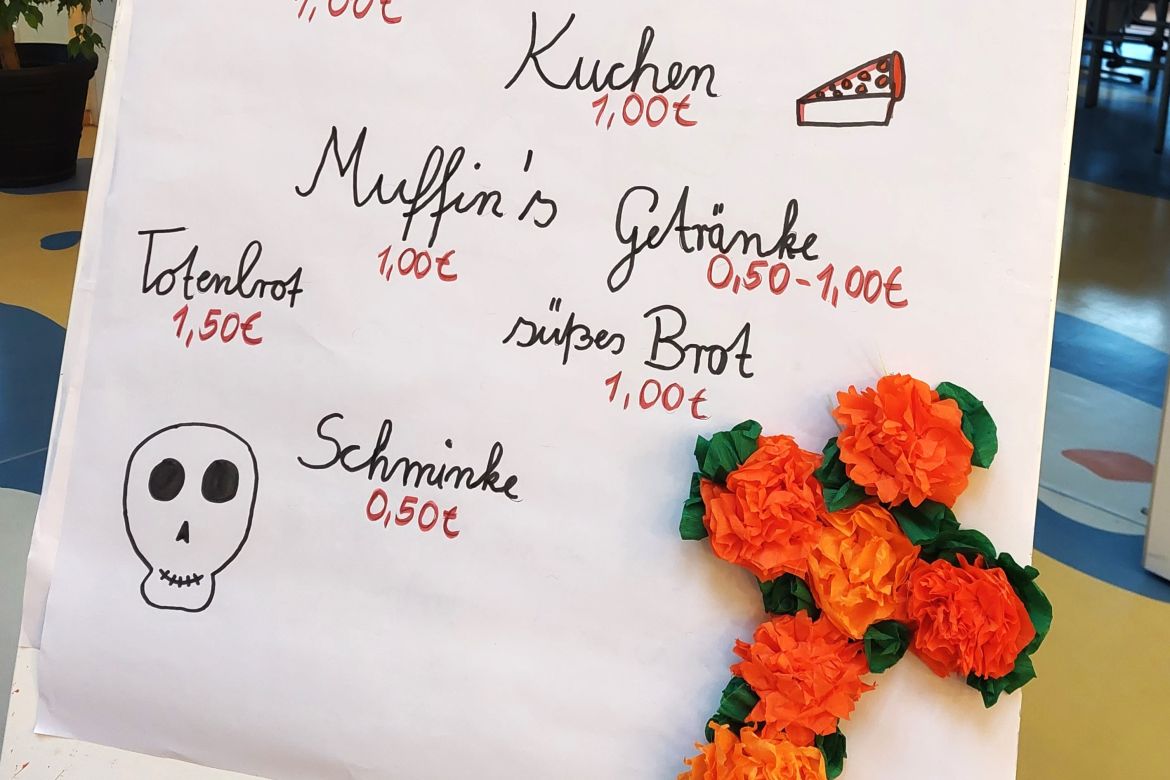 1,00€
Kuchen
1,00€
Muffin's
1,00€
Getränke
0,50-1,00€
Totenbrot
1,50€
süßes Brot
1,00€
Schminke
0,50€